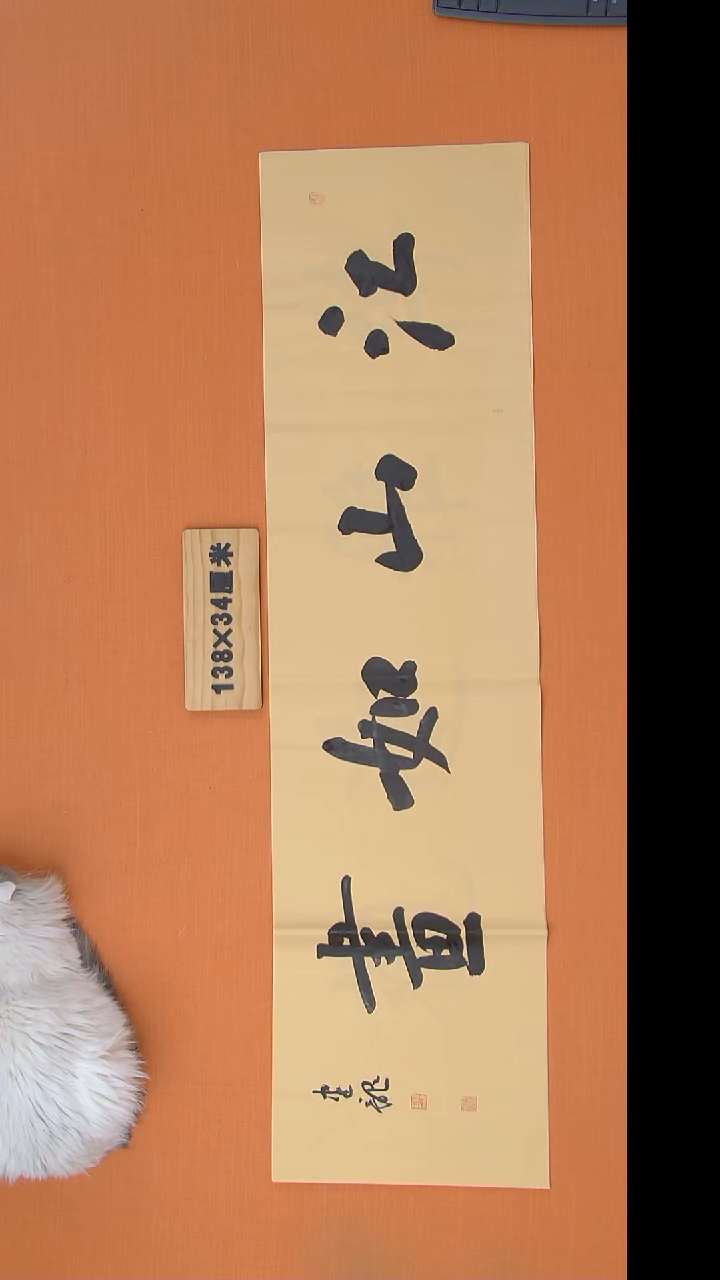 江山如畫
138×34厘米